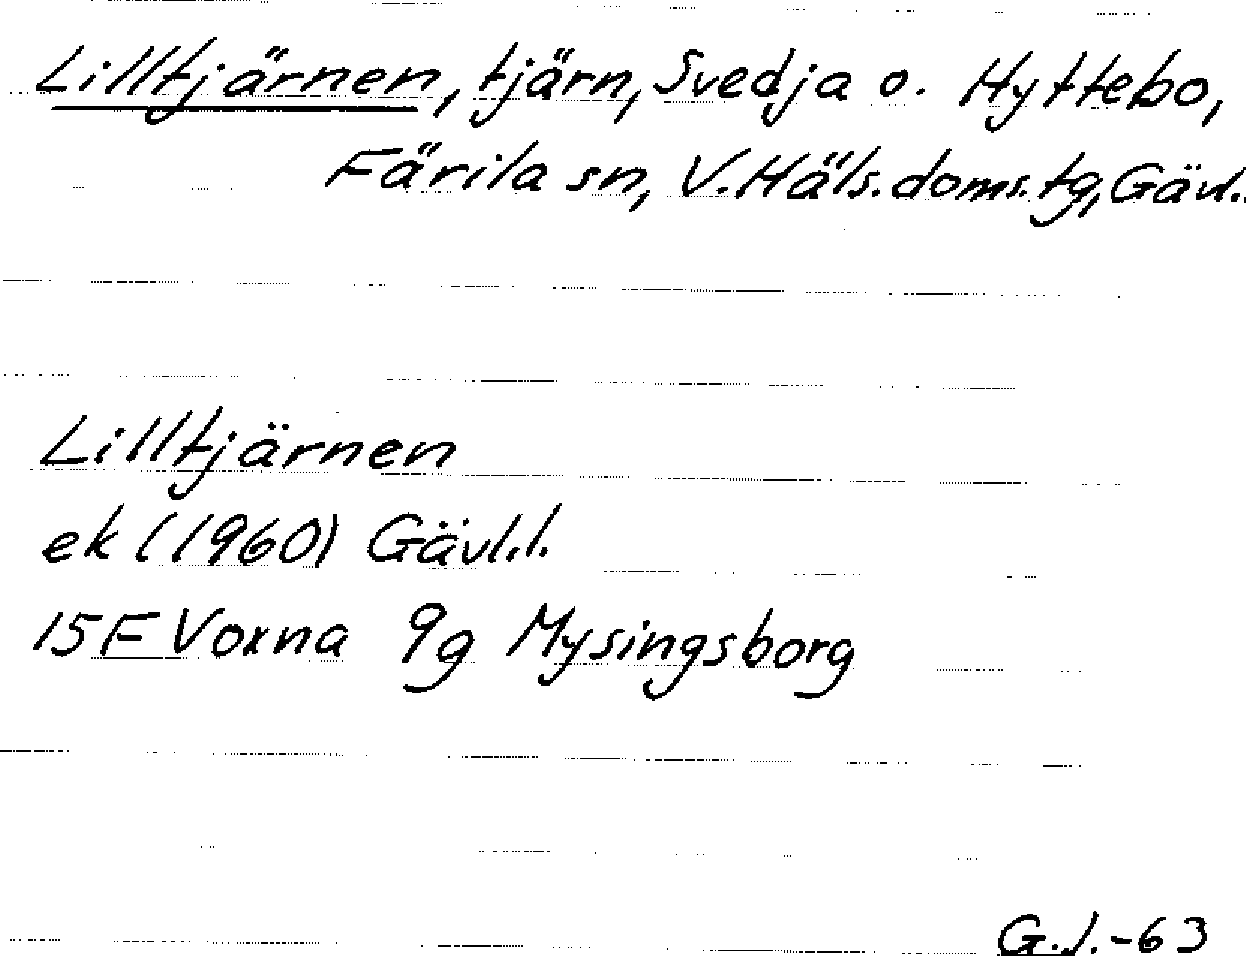 Lilltjärnen, tjärn, Svedja o. Hyttebo,
Färila sn, V. Häls. doms. tg, Gävl.
Lilltjärnen
ek (1960) Gävl.l.
15F Voxna 9g Mysingsborg
G.J.-63